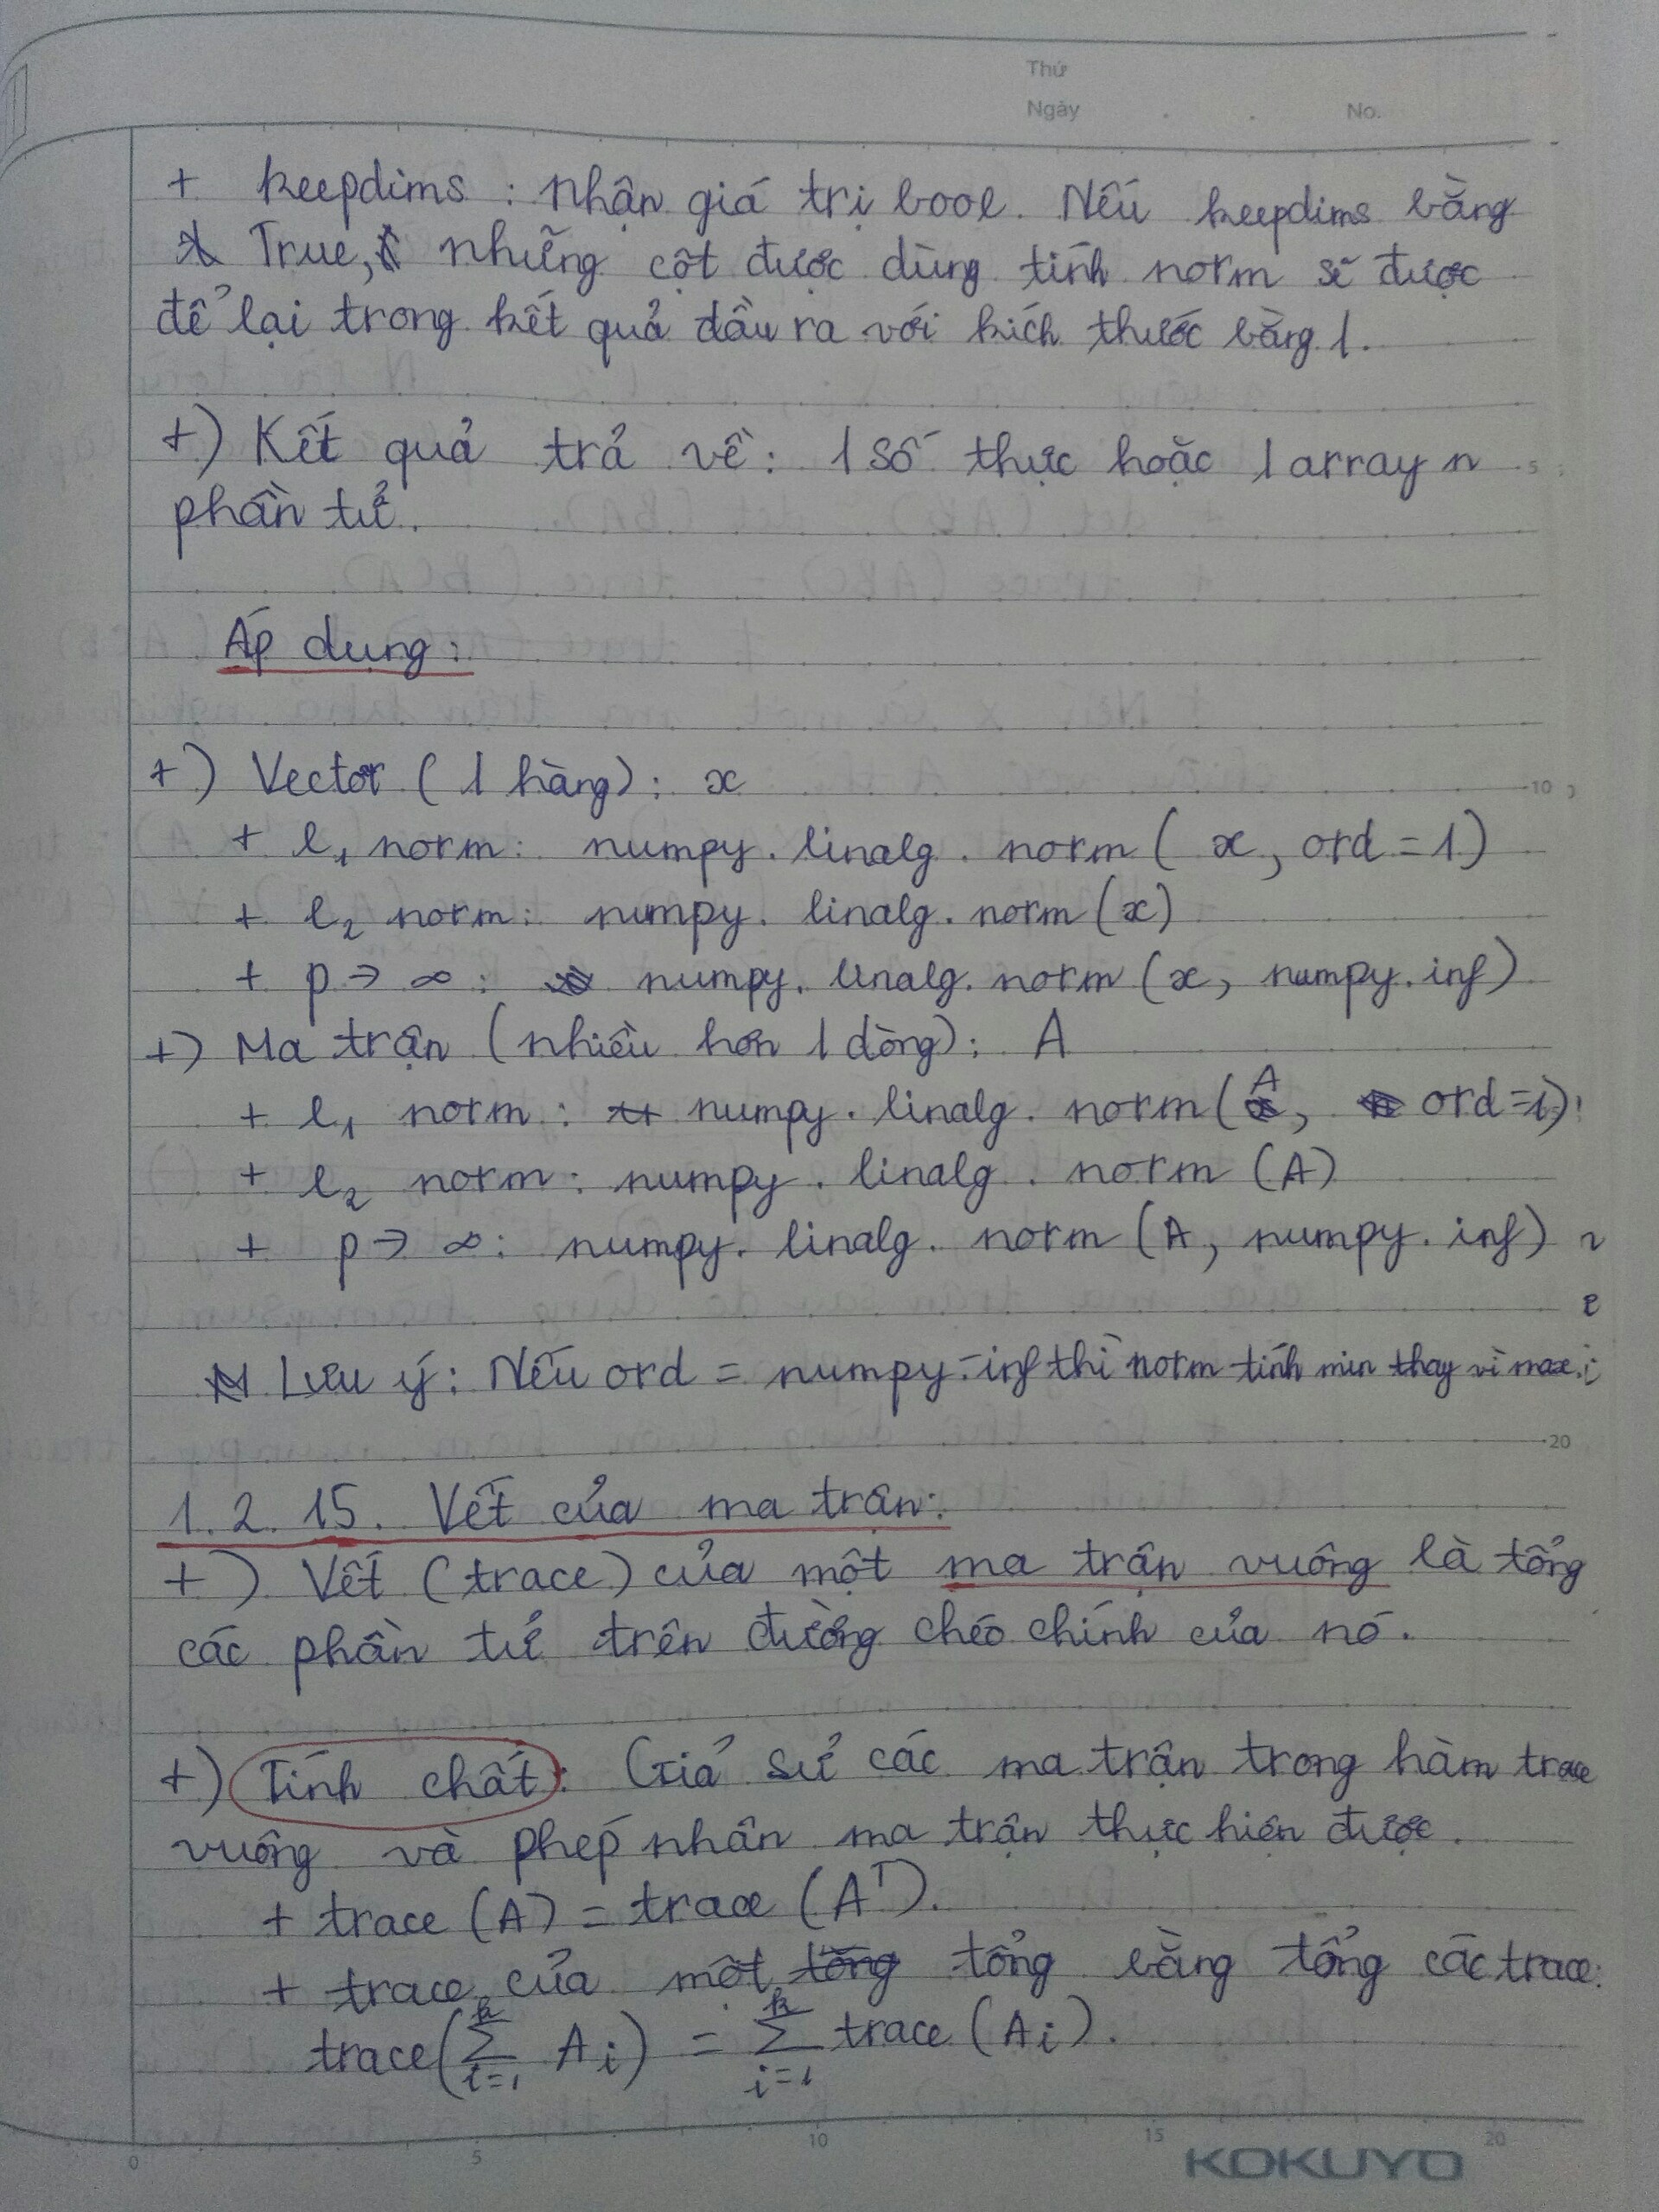 Thứ
Ngày No.
+ keepdims : Nhận giá trị bool. Nếu keepdims bằng
True, những cột được dùng tính norm sẽ được
để lại trong kết quả đầu ra với kích thước bằng 1.
+) Kết quả trả về: 1 số thực hoặc 1 array n
phần tử.
Áp dụng:
+) Vector (1 hàng): x
+ l₁ norm: numpy.linalg.norm(x, ord=1)
+ l₂ norm: numpy.linalg.norm(x)
+ p → ∞: numpy.linalg.norm(x, numpy.inf)
+) Ma trận (nhiều hơn 1 dòng): A
+ l₁ norm: numpy.linalg.norm(A, ord=1)
+ l₂ norm: numpy.linalg.norm(A)
+ p → ∞: numpy.linalg.norm(A, numpy.inf)
Lưu ý: Nếu ord = numpy.-inf thì norm tính min thay vì max.
1.2.15. Vết của ma trận:
+) Vết (trace) của một ma trận vuông là tổng
các phần tử trên đường chéo chính của nó.
+) Tính chất: Giả sử các ma trận trong hàm trace
vuông và phép nhân ma trận thực hiện được.
+ trace(A) = trace(Aᵀ).
+ trace của một tổng bằng tổng các trace:
trace(∑ᵢ₌₁ᵏ Aᵢ) = ∑ᵢ₌₁ᵏ trace(Aᵢ).
0 5 10 15 20
KOKUYO